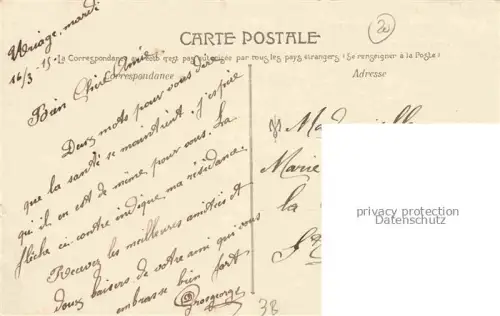 Uriage, mardi
16/3-15
20
CARTE POSTALE
La Correspondance au recto n'est pas autorisée par tous les pays étrangers (Se renseigner à la Poste)
Correspondance
Adresse
Bien Chère Amie
Deux mots pour vous dire
que la santé se maintient. J'espère
qu'il en est de même pour vous. La
flèche ci contre indique ma résidence.
Recevez les meilleures amitiés et
doux baisers de votre ami qui vous
embrasse bien fort
Grosgeorge
Marie
la
privacy protection
Datenschutz
38